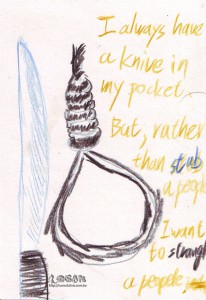 I always have
a knive in
my pocket.
But, rather
than stab
a people
I want
to strangle
a people